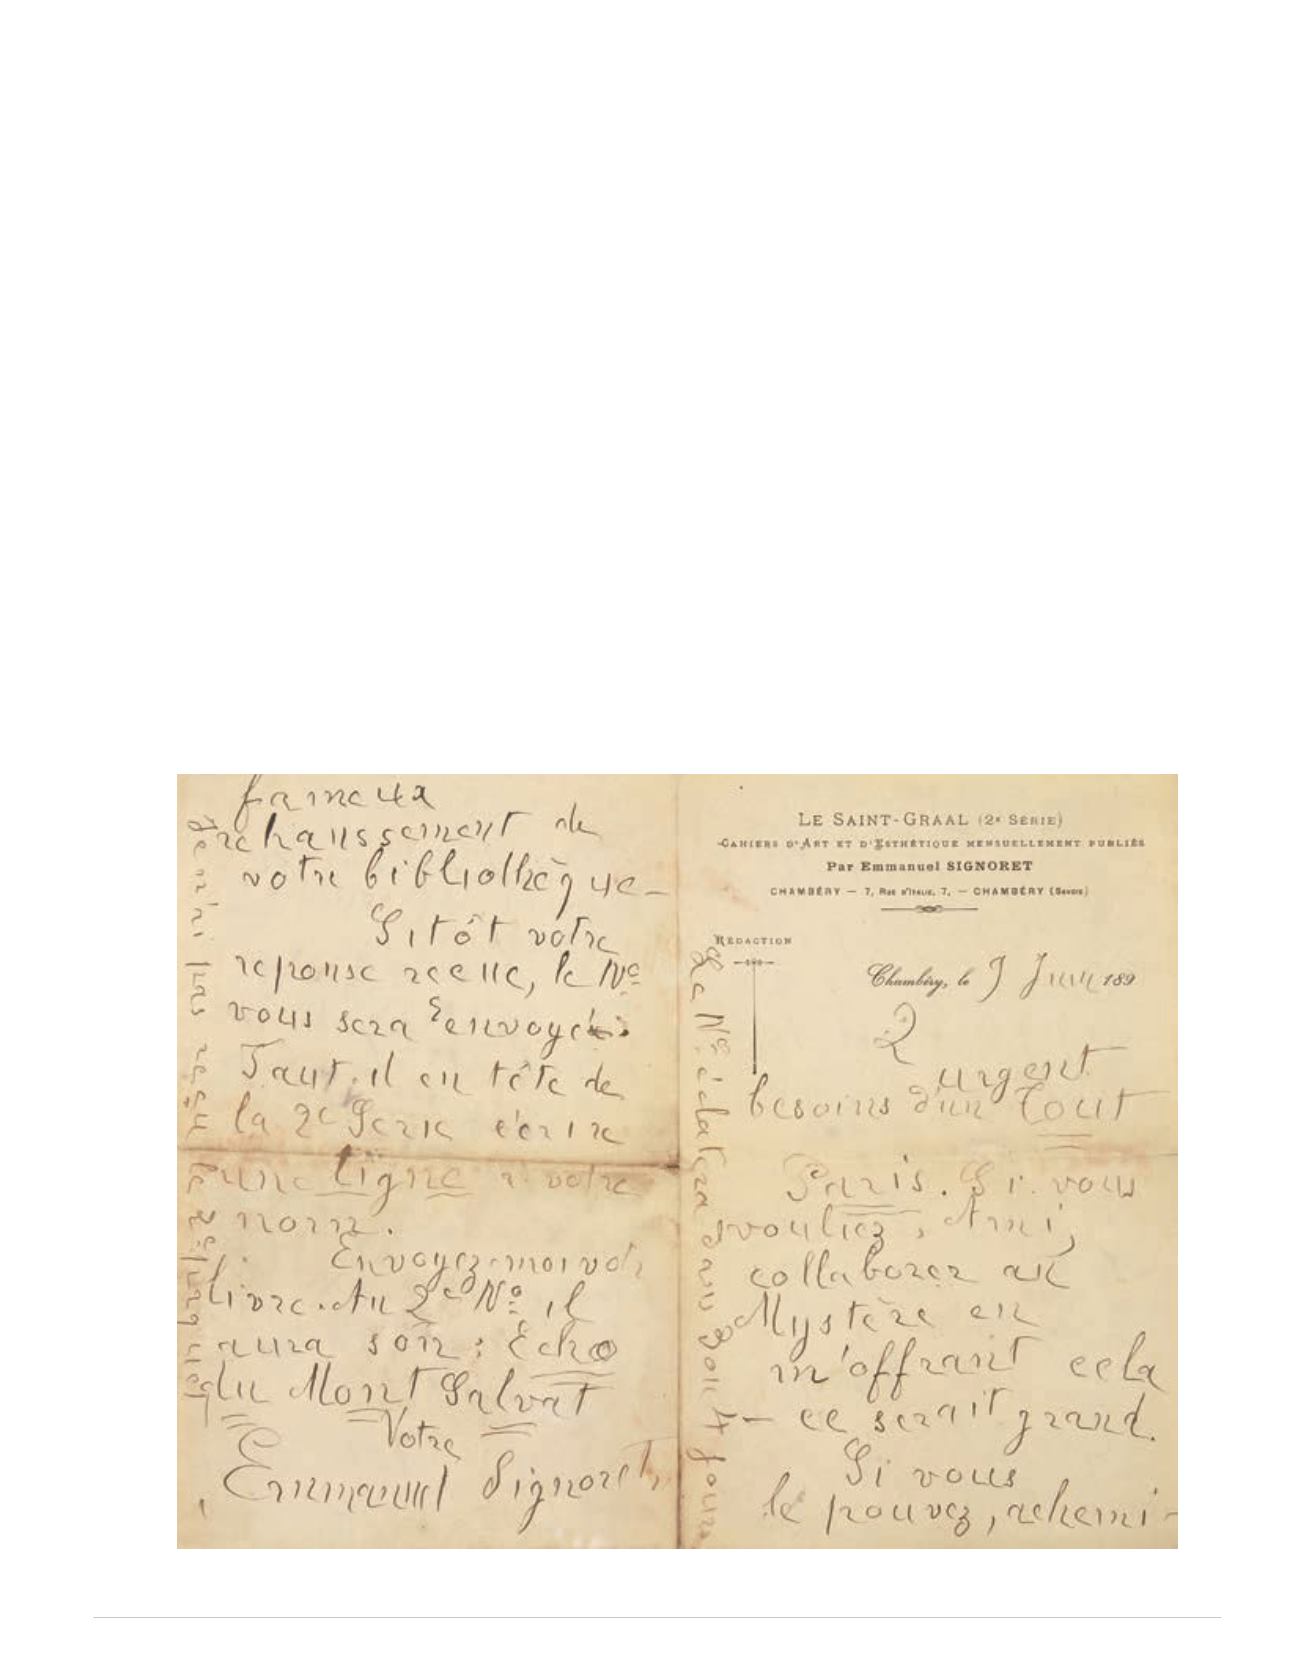 fameux
rehaussement de
votre bibliothèque —
Sitôt votre
reponse reçue, le Nº
vous sera envoyé.
Faut-il en tête de
la 2e Serie écrire
une ligne à votre
nom.
Envoyez-moi votr
livre. Au 2e Nº il
aura son : Echo
du Mont Salvat
Votre
Emmanuel Signoret
LE SAINT-GRAAL (2e SÉRIE)
CAHIERS D'ART ET D'ESTHÉTIQUE MENSUELLEMENT PUBLIÉS
Par Emmanuel SIGNORET
CHAMBÉRY — 7, RUE D'ITALIE, 7, — CHAMBÉRY (SAVOIE)
RÉDACTION
Chambéry, le 9 Juin 189
2
urgent
besoins d'un Tout
Paris. Si vous
vouliez, Ami,
collaborer au
Mystère en
m'offrant cela
— ce serait grand.
Si vous
le pouvez, achemi-
Le Nº éclatera dans 3 ou 4 jours